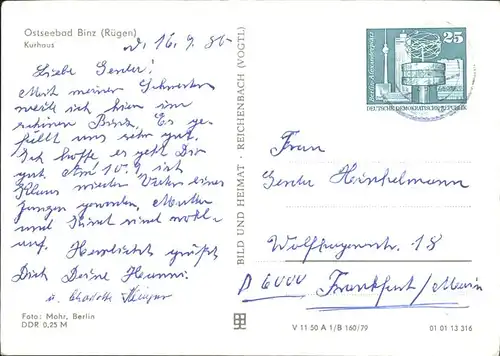 Ostseebad Binz (Rügen)
Kurhaus
d. 16.9.80-
Liebe Gerda!
Mit meiner Schwester
weile ich hier im
schönen Binz. Es ge-
fällt uns sehr gut.
Ich hoffe es geht Dir
gut. Am 10.9 ist
Klaus wieder Vater eines
Jungen geworden. Mutter
und Kind sind wohl-
auf. Herzlichst grüßt
Dich Deine Hanni.
u. Charlotte
Foto: Mohr, Berlin
DDR 0,25 M
BILD UND HEIMAT · REICHENBACH (VOGTL)
25
Berlin-Alexanderplatz
DEUTSCHE DEMOKRATISCHE REPUBLIK
Frau
Gerda Hinkelmann
18
D 6000 Frankfurt/Main
V 11 50 A 1/B 160/79
01 01 13 316